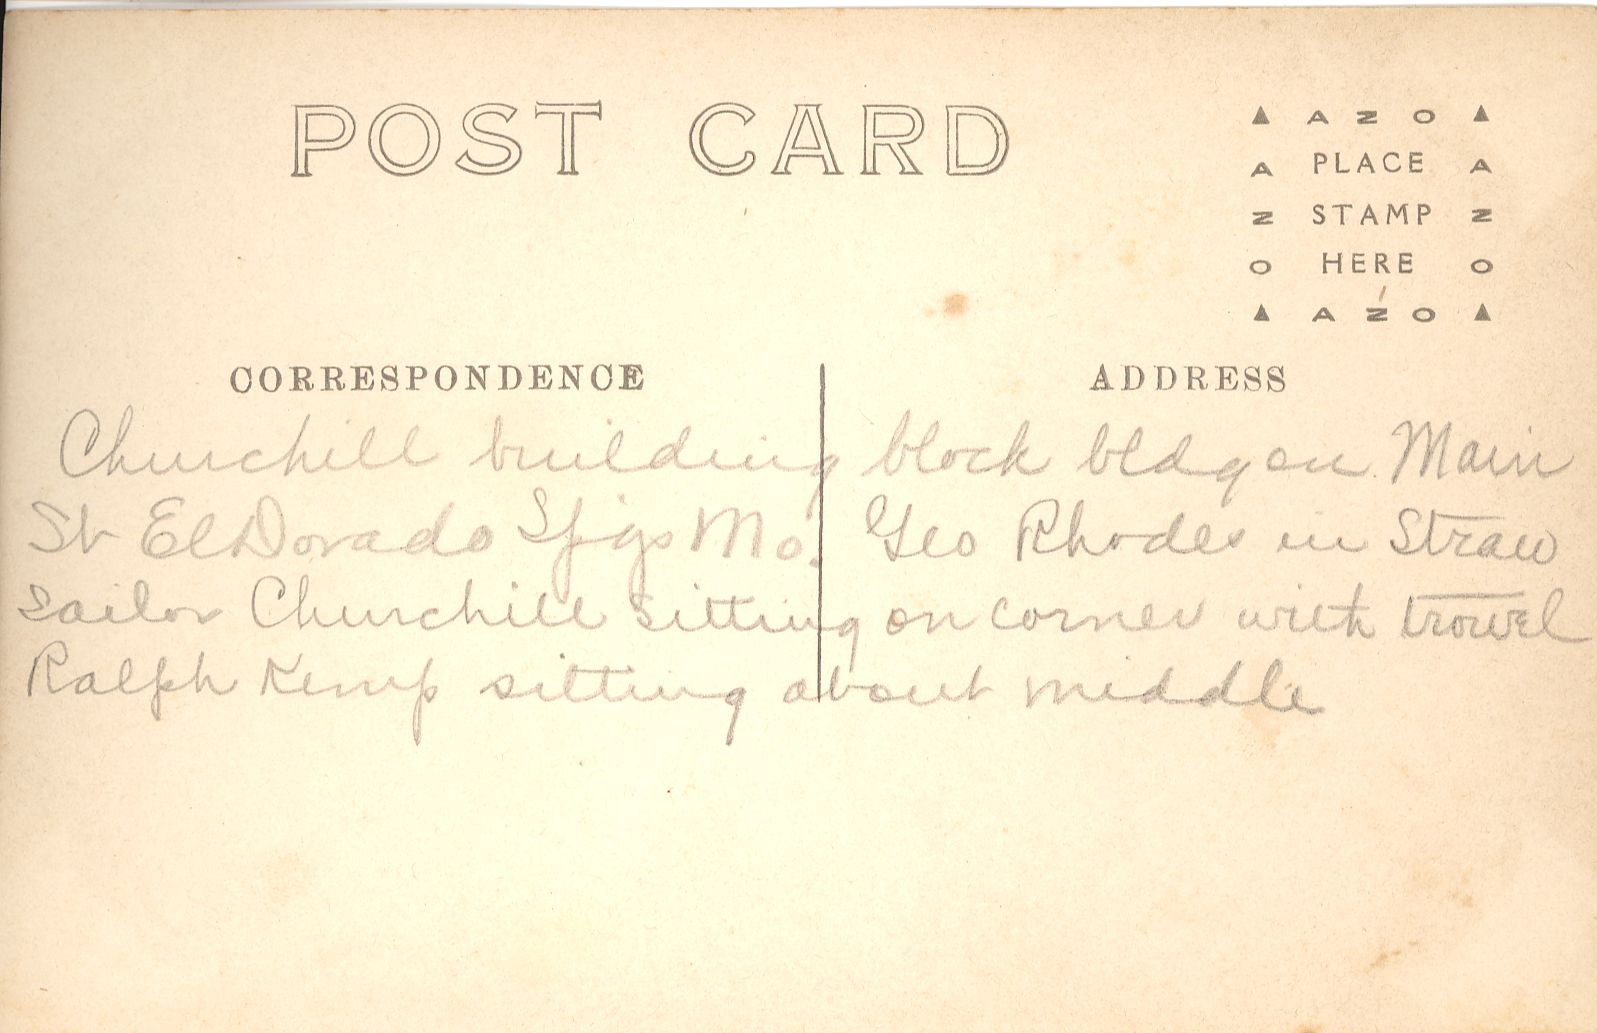 POST CARD
▲ A Z O ▲
A PLACE A
Z STAMP Z
O HERE O
▲ A Z O ▲
CORRESPONDENCE
ADDRESS
Churchill building block bldg on Main
St El Dorado Spgs Mo. Geo Rhodes in Straw
sailor Churchill sitting on corner with trowel
Ralph Kemp sitting about middle